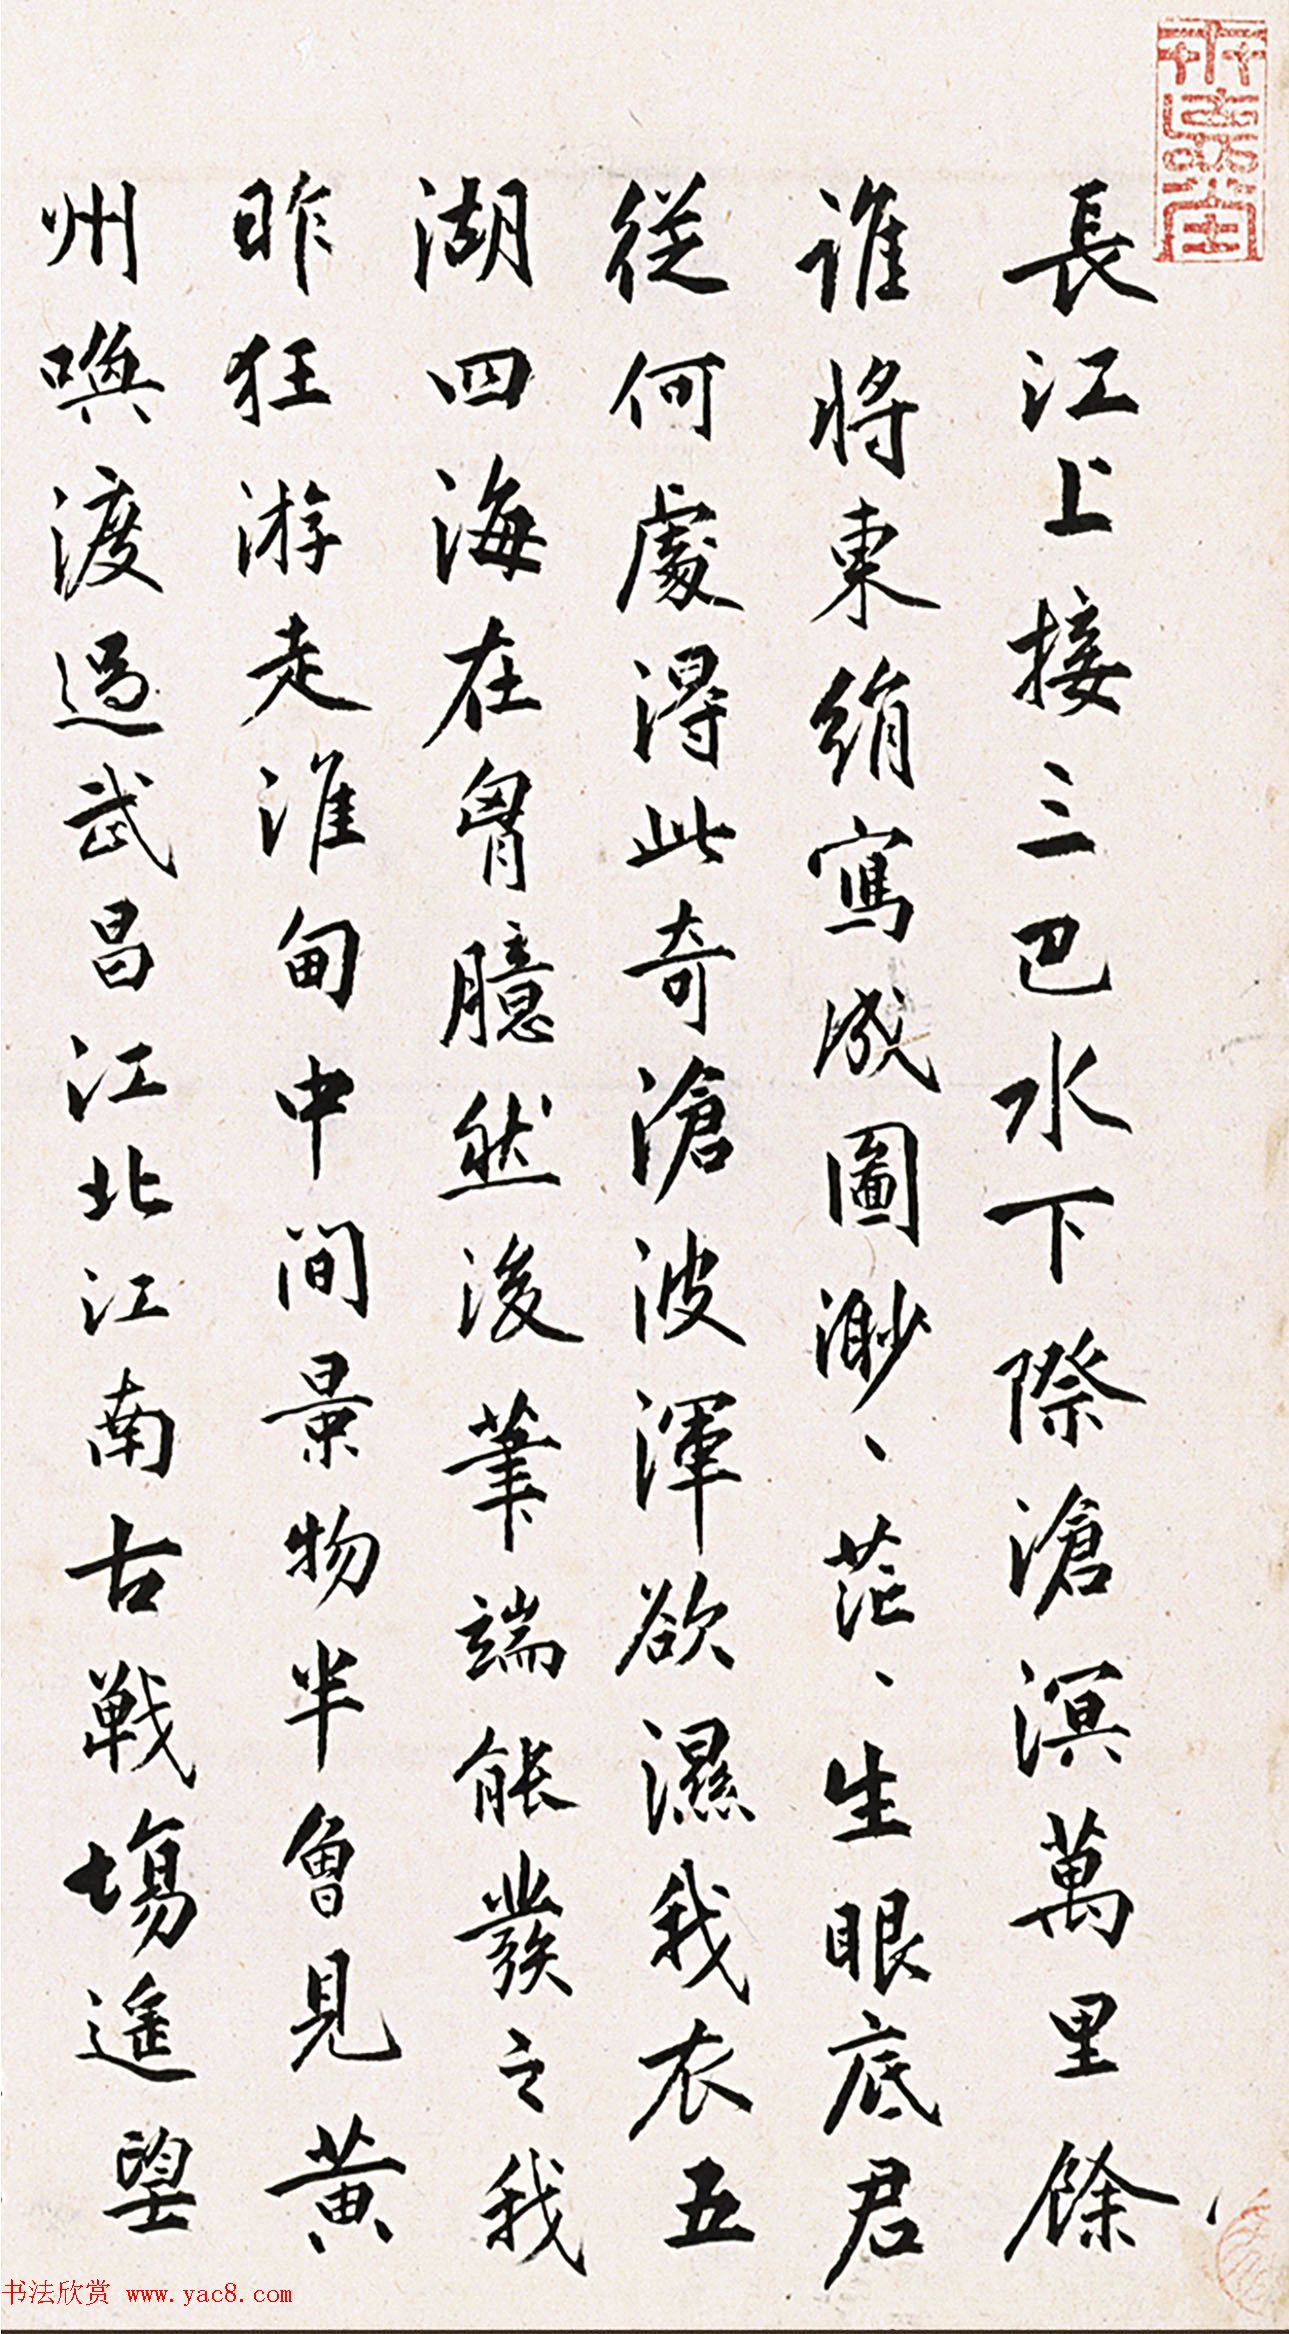 長江上接三巴水下際滄溟萬里餘
誰將東絹寫成圖渺、茫、生眼底君
從何處得此奇滄波渾欲濕我衣五
湖四海在胷臆然後筆端能發之我
昨狂游走淮甸中間景物半曾見黄
州喚渡過武昌江北江南古戰場遥望
书法欣赏 www.yac8.com